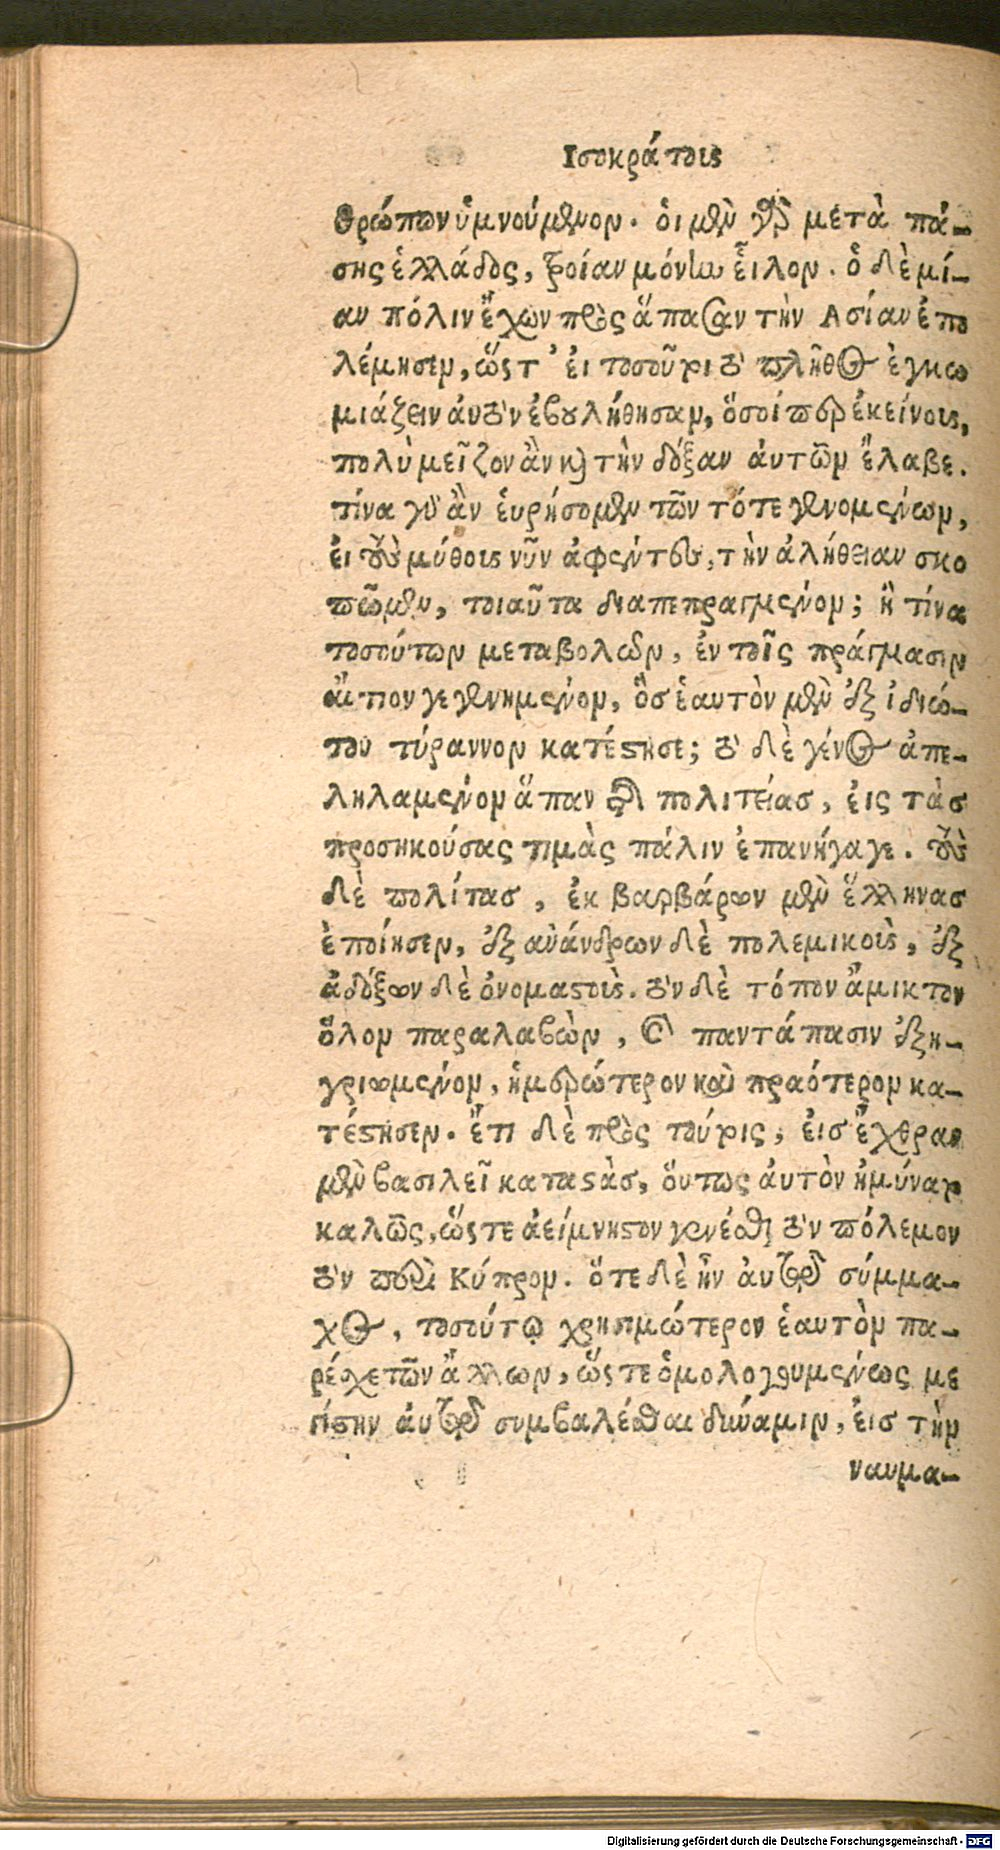 Ισοκράτους
θρώπων ὑμνούμενον. ὁι μὲν γὰρ μετὰ πά-
σης ἑλλάδος, τροίαν μόνην εἷλον. ὁ δὲ μί-
αν πόλιν ἔχων πρὸς ἅπασαν τὴν Ασίαν ἐπο
λέμησεν, ὥστ' ἐι τοσοῦτοι τὸ πλῆθος ἐγκω
μιάζειν ἀυτὸν ἐβουλήθησαν, ὅσοί περ ἐκείνους,
πολὺ μεῖζον ἂν καὶ τὴν δόξαν ἀυτῶν ἔλαβε.
τίνα γὰρ ἂν ἑυρήσομεν τῶν τότε γενομένων,
ἐι τοὺς μύθους νῦν ἀφέντες, τὴν ἀλήθειαν σκο
πῶμεν, τοιαῦτα διαπεπραγμένον; ἢ τίνα
τοσούτων μεταβολῶν, ἐν τοῖς πράγμασιν
ἄιτιον γεγενημένον, ὃς ἑαυτὸν μὲν ἐξ ἰδιώ-
του τύραννον κατέστησε; τὸ δὲ γένος ἀπε-
ληλαμένον ἅπαν τῆς πολιτείας, ἐις τὰς
προσηκούσας τιμὰς πάλιν ἐπανήγαγε. τοὺς
δὲ πολίτας, ἐκ βαρβάρων μὲν ἕλληνας
ἐποίησεν, ἐξ ανάνδρων δὲ πολεμικοὺς, ἐξ
ἀδόξων δὲ ὀνομαστοὺς. τὸν δὲ τόπον ἄμικτον
ὅλον παραλαβὼν, καὶ παντάπασιν ἐξη-
γριωμένον, ἡμερώτερον καὶ πραότερον κα-
τέστησεν. ἔτι δὲ πρὸς τούτοις, ἐις ἔχθραν
μὲν βασιλεῖ καταστὰς, ὅυτως ἀυτὸν ἠμύνατο
καλῶς, ὥστε ἀείμνηστον γενέσθαι τὸν πόλεμον
τὸν περὶ Κύπρον. ὅτε δὲ ἦν ἀυτῷ σύμμα-
χος, τοσούτῳ χρησιμώτερον ἑαυτὸν πα-
ρέσχε τῶν ἄλλων, ὥστε ὁμολογουμένως με
γίστην ἀυτῷ συμβαλέσθαι δύναμιν, ἐις τὴν
ναυμα-
Digitalisierung gefördert durch die Deutsche Forschungsgemeinschaft - DFG